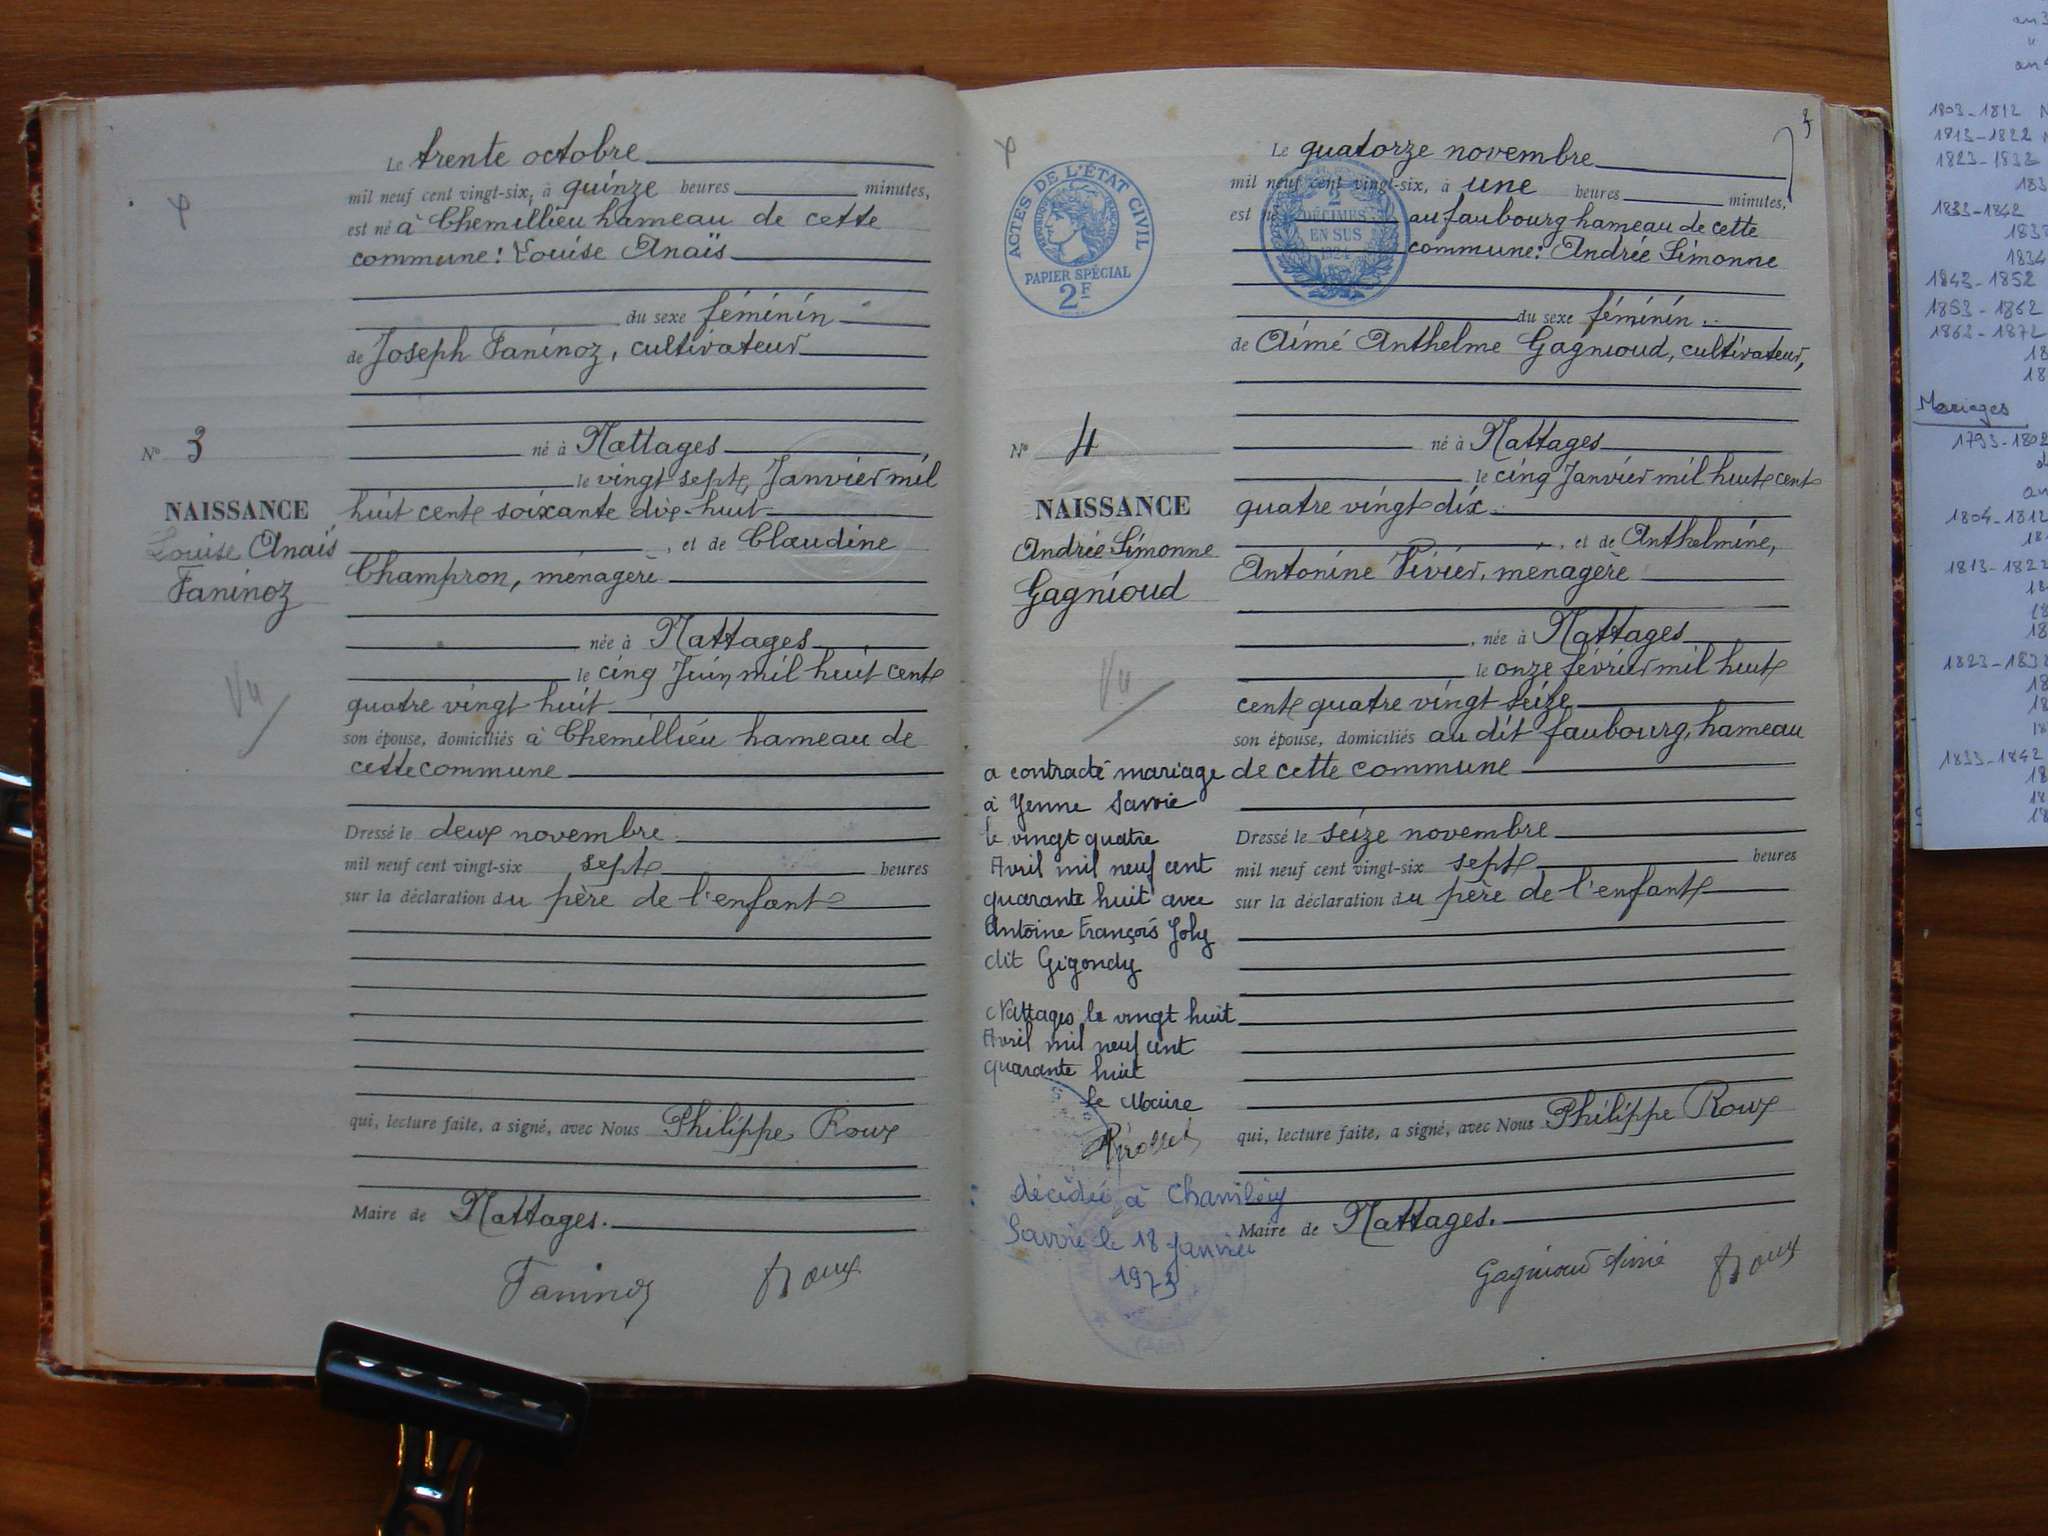 Le trente octobre
mil neuf cent vingt-six, à quinze heures minutes,
est né à Chemillieu hameau de cette
commune: Louise Anaïs
du sexe féminin
de Joseph Faninoz, cultivateur
né à Nattages
le vingt sept Janvier mil
huit cent soixante dix-huit
, et de Claudine
Champron, ménagère
née à Nattages
le cinq Juin mil huit cent
quatre vingt huit
son épouse, domiciliés à Chemillieu hameau de
cette commune
Dressé le deux novembre
mil neuf cent vingt-six sept heures
sur la déclaration du père de l'enfant
qui, lecture faite, a signé, avec Nous Philippe Roux
Maire de Nattages.
Faninoz Roux
N° 3
NAISSANCE
Louise Anaïs
Faninoz
Vu
3
Le quatorze novembre
mil neuf cent vingt-six, à une heures minutes,
est né au faubourg hameau de cette
commune: Andrée Simonne
du sexe féminin
de Aimé Anthelme Gagnioud, cultivateur,
né à Nattages
le cinq Janvier mil huit cent
quatre vingt dix
, et de Anthelmine,
Antonine Vivier, ménagère
, née à Nattages
le onze février mil huit
cent quatre vingt seize
son épouse, domiciliés au dit faubourg, hameau
de cette commune
Dressé le seize novembre
mil neuf cent vingt-six sept heures
sur la déclaration du père de l'enfant
qui, lecture faite, a signé, avec Nous Philippe Roux
Maire de Nattages.
Gagnioud Aimé Roux
ACTES DE L'ÉTAT CIVIL
PAPIER SPÉCIAL
2F
2
DÉCIMES
EN SUS
1924
N° 4
NAISSANCE
Andrée Simonne
Gagnioud
Vu
a contracté mariage
à Yenne Savoie
le vingt quatre
Avril mil neuf cent
quarante huit avec
Antoine François Joly
dit Gigondy
Nattages le vingt huit
Avril mil neuf cent
quarante huit
le Maire
décédée à Chambéry
Savoie le 18 Janvier
1973
1803-1812
1813-1822
1823-1832
1833-1842
1834
1843-1852
1853-1862
1863-1872
Mariages
1793-1802
1804-1812
1813-1822
1823-1832
1833-1842